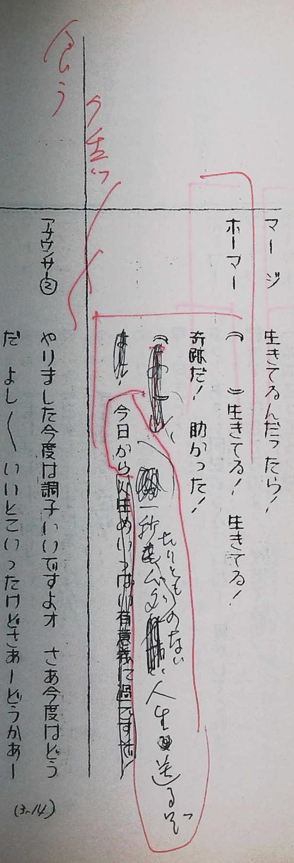 マージ　生きてるんだったら！
ホーマー　（　）生きてる！　生きてる！
奇跡だ！　助かった！
今日から
一秒たりともムダのない
人生を送るぞッ
食う
アナウンサー②　やりました今度は調子いいですよオ　さあ今度はどう
だ　よし〳〵いいとこいったけどさあーどうかあー
(3-14)